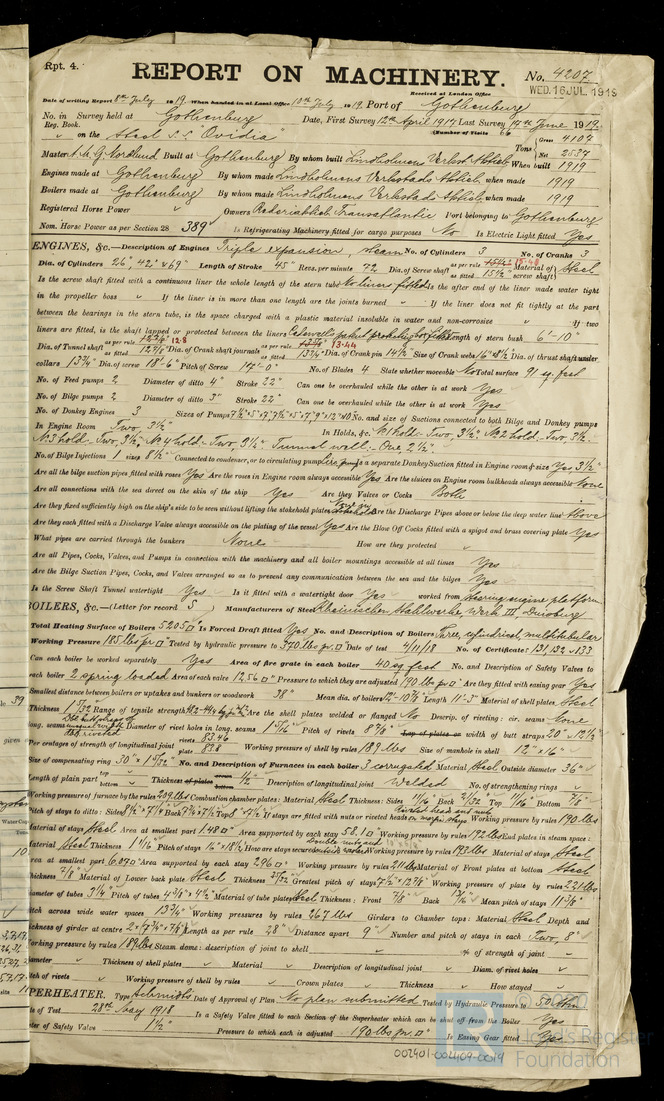 Rpt. 4.
REPORT ON MACHINERY. No. 4207
Received at London Office WED. 16 JUL. 1919
Date of writing Report 8th July 1919. When handed in at Local Office 10th July 1919. Port of Gothenburg
No. in Survey held at Gothenburg Date, First Survey 12th April 1917 Last Survey 17th June 1919.
Reg. Book. (Number of Visits 66
" on the Steel S.S. "Ovidia" Tons Gross 4107 Net 2537
Master Nordlund Built at Gothenburg By whom built Lindholmens Verkst. Aktieb. When built 1919
Engines made at Gothenburg By whom made Lindholmens Verkstads Aktieb. when made 1919
Boilers made at Gothenburg By whom made Lindholmens Verkstads Aktieb. when made 1919
Registered Horse Power Owners Rederiaktieb. Transatlantic Port belonging to Gothenburg
Nom. Horse Power as per Section 28 389 Is Refrigerating Machinery fitted for cargo purposes No Is Electric Light fitted Yes
ENGINES, &c.—Description of Engines Triple expansion, steam No. of Cylinders 3 No. of Cranks 3
Dia. of Cylinders 26", 42" x 69" Length of Stroke 45" Revs. per minute 72 Dia. of Screw shaft as per rule as fitted 15½" Material of screw shaft Steel
Is the screw shaft fitted with a continuous liner the whole length of the stern tube No liners fitted Is the after end of the liner made water tight
in the propeller boss " If the liner is in more than one length are the joints burned " If the liner does not fit tightly at the part
between the bearings in the stern tube, is the space charged with a plastic material insoluble in water and non-corrosive " If two
liners are fitted, is the shaft lapped or protected between the liners Length of stern bush 6'-10"
Dia. of Tunnel shaft as per rule 12.8 as fitted 12⅞" Dia. of Crank shaft journals as per rule 13.44 as fitted 13¾" Dia. of Crank pin 14½" Size of Crank webs Dia. of thrust shaft under
collars 13¾" Dia. of screw 18'-6" Pitch of Screw 17'-0" No. of Blades 4 State whether moveable No Total surface 91 sq. feet
No. of Feed pumps 2 Diameter of ditto 4" Stroke 22" Can one be overhauled while the other is at work Yes
No. of Bilge pumps 2 Diameter of ditto 3" Stroke 22" Can one be overhauled while the other is at work Yes
No. of Donkey Engines 3 Sizes of Pumps No. and size of Suctions connected to both Bilge and Donkey pumps
In Engine Room Two, 3½" In Holds, &c. No 1 hold - Two, 3½", No 2 hold - Two, 3½"
No 3 hold - Two, 3½", No 4 hold - Two, 3½" Tunnel well - One, 2½"
No. of Bilge Injections 1 sizes 8½" Connected to condenser, or to circulating pump Is a separate Donkey Suction fitted in Engine room & size Yes 3½"
Are all the bilge suction pipes fitted with roses Yes Are the roses in Engine room always accessible Yes Are the sluices on Engine room bulkheads always accessible None
Are all connections with the sea direct on the skin of the ship Yes Are they Valves or Cocks Both
Are they fixed sufficiently high on the ship's side to be seen without lifting the stokehold plates Are the Discharge Pipes above or below the deep water line Above
Are they each fitted with a Discharge Valve always accessible on the plating of the vessel Yes Are the Blow Off Cocks fitted with a spigot and brass covering plate Yes
What pipes are carried through the bunkers None How are they protected "
Are all Pipes, Cocks, Valves, and Pumps in connection with the machinery and all boiler mountings accessible at all times Yes
Are the Bilge Suction Pipes, Cocks, and Valves arranged so as to prevent any communication between the sea and the bilges Yes
Is the Screw Shaft Tunnel watertight Yes Is it fitted with a watertight door Yes worked from Steering engine platform
BOILERS, &c.—(Letter for record S) Manufacturers of Steel Rheinischen Stahlwerke, Werk III, Duisburg
Total Heating Surface of Boilers 5205 □' Is Forced Draft fitted Yes No. and Description of Boilers Three, cylindrical, multitubular
Working Pressure 185 lbs pr □" Tested by hydraulic pressure to 370 lbs pr □" Date of test 4/11/18 No. of Certificate 131, 132 & 133
Can each boiler be worked separately Yes Area of fire grate in each boiler 40 sq feet No. and Description of Safety Valves to
each boiler 2 spring loaded Area of each valve 12.56 □" Pressure to which they are adjusted 190 lbs pr □" Are they fitted with easing gear Yes
Smallest distance between boilers or uptakes and bunkers or woodwork 38" Mean dia. of boilers Length 11'-3" Material of shell plates Steel
Thickness Range of tensile strength Are the shell plates welded or flanged No Descrip. of riveting: cir. seams None
long. seams Diameter of rivet holes in long. seams Pitch of rivets 8⅞" Lap of plates or width of butt straps
Per centages of strength of longitudinal joint rivets 83.46 plate 83.8 Working pressure of shell by rules 189 lbs Size of manhole in shell 12" x 16"
Size of compensating ring No. and Description of Furnaces in each boiler 3 corrugated Material Steel Outside diameter 36"
Length of plain part top bottom Thickness of plates crown bottom ½" Description of longitudinal joint Welded No. of strengthening rings "
Working pressure of furnace by the rules 209 lbs Combustion chamber plates: Material Steel Thickness: Sides 11/16" Back 21/32" Top 11/16" Bottom ⅞"
Pitch of stays to ditto: Sides Back Top If stays are fitted with nuts or riveted heads Working pressure by rules 190 lbs
Material of stays Steel Area at smallest part 1.48 □" Area supported by each stay 58.1 □" Working pressure by rules 192 lbs End plates in steam space:
Material Steel Thickness 1 1/16" Pitch of stays How are stays secured Working pressure by rules 193 lbs Material of stays Steel
Area at smallest part Area supported by each stay 296 □" Working pressure by rules 211 lbs Material of Front plates at bottom Steel
Thickness ⅞" Material of Lower back plate Steel Thickness Greatest pitch of stays Working pressure of plate by rules 221 lbs
Diameter of tubes 3¼" Pitch of tubes Material of tube plates Steel Thickness: Front ⅞" Back Mean pitch of stays
Pitch across wide water spaces 13¾" Working pressures by rules 267 lbs Girders to Chamber tops: Material Steel Depth and
thickness of girder at centre Length as per rule 28" Distance apart 9" Number and pitch of stays in each Two, 8"
Working pressure by rules 189 lbs Steam dome: description of joint to shell " % of strength of joint "
Diameter " Thickness of shell plates " Material " Description of longitudinal joint " Diam. of rivet holes "
Pitch of rivets " Working pressure of shell by rules " Crown plates " Thickness " How stayed "
SUPERHEATER. Type Schmidts Date of Approval of Plan No plan submitted Tested by Hydraulic Pressure to 50 Atm
Date of Test 28th May 1918 Is a Safety Valve fitted to each Section of the Superheater which can be shut off from the Boiler Yes
Diameter of Safety Valve 1½" Pressure to which each is adjusted 190 lbs pr. □" Is Easing Gear fitted Yes
© 2020
Lloyd's Register
Foundation
002401-002409-0019